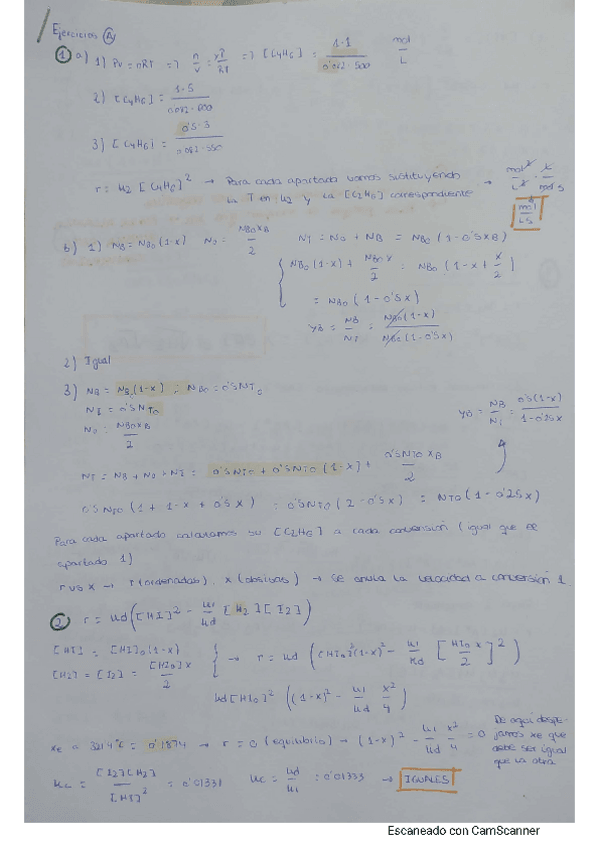 Ejercicios A
1 a) 1) PV = nRT => n/V = yP/RT => [C4H6] = 1·1/0'082·500 mol/L
2) [C4H6] = 1·5/0'082·600
3) [C4H6] = 0'5·3/0'082·550
r = k2 [C4H6]² → Para cada apartado vamos sustituyendo → mol²/L² · L/mol s
la T en k2 y la [C2H6] correspondiente mol/L s
b) 1) NB = NB0 (1-x) ND = NB0 xB/2 NT = ND + NB = NB0 (1-0'5xB)
NB0 (1-x) + NB0 x/2 = NB0 (1-x + x/2)
= NB0 (1-0'5x)
yB = NB/NT = NB0 (1-x)/NB0 (1-0'5x)
2) Igual
3) NB = NB0 (1-x) ; NB0 = 0'5NT0
NI = 0'5NT0
ND = NB0 xB/2
yB = NB/NT = 0'5(1-x)/1-0'25x
NT = NB + ND + NI = 0'5NT0 + 0'5NT0 (1-x) + 0'5NT0 xB/2
0'5NT0 (1 + 1-x + 0'5x) = 0'5NT0 (2-0'5x) = NT0 (1-0'25x)
Para cada apartado calculamos su [C2H6] a cada conversión (igual que el
apartado 1)
r vs x → r (ordenadas), x (abscisas) → Se anula la velocidad a conversión 1
2 r = kd ([HI]² - ki/kd [H2][I2])
[HI] = [HI]0 (1-x)
[H2] = [I2] = [HI]0 x/2
→ r = kd ([HI0]² (1-x)² - ki/kd [HI0 x/2]²)
kd [HI0]² ((1-x)² - ki/kd x²/4)
xe a 321'4ºC = 0'1874 → r = 0 (equilibrio) → (1-x)² - ki/kd x²/4 = 0
De aquí despejamos xe que
debe ser igual
que la otra
kc = [I2][H2]/[HI]² = 0'01331 kc = kd/ki = 0'01333 → IGUALES
Escaneado con CamScanner